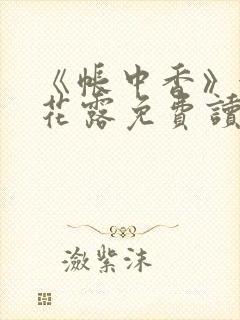 《帳中香》
花露免費讀
瀲紫沫